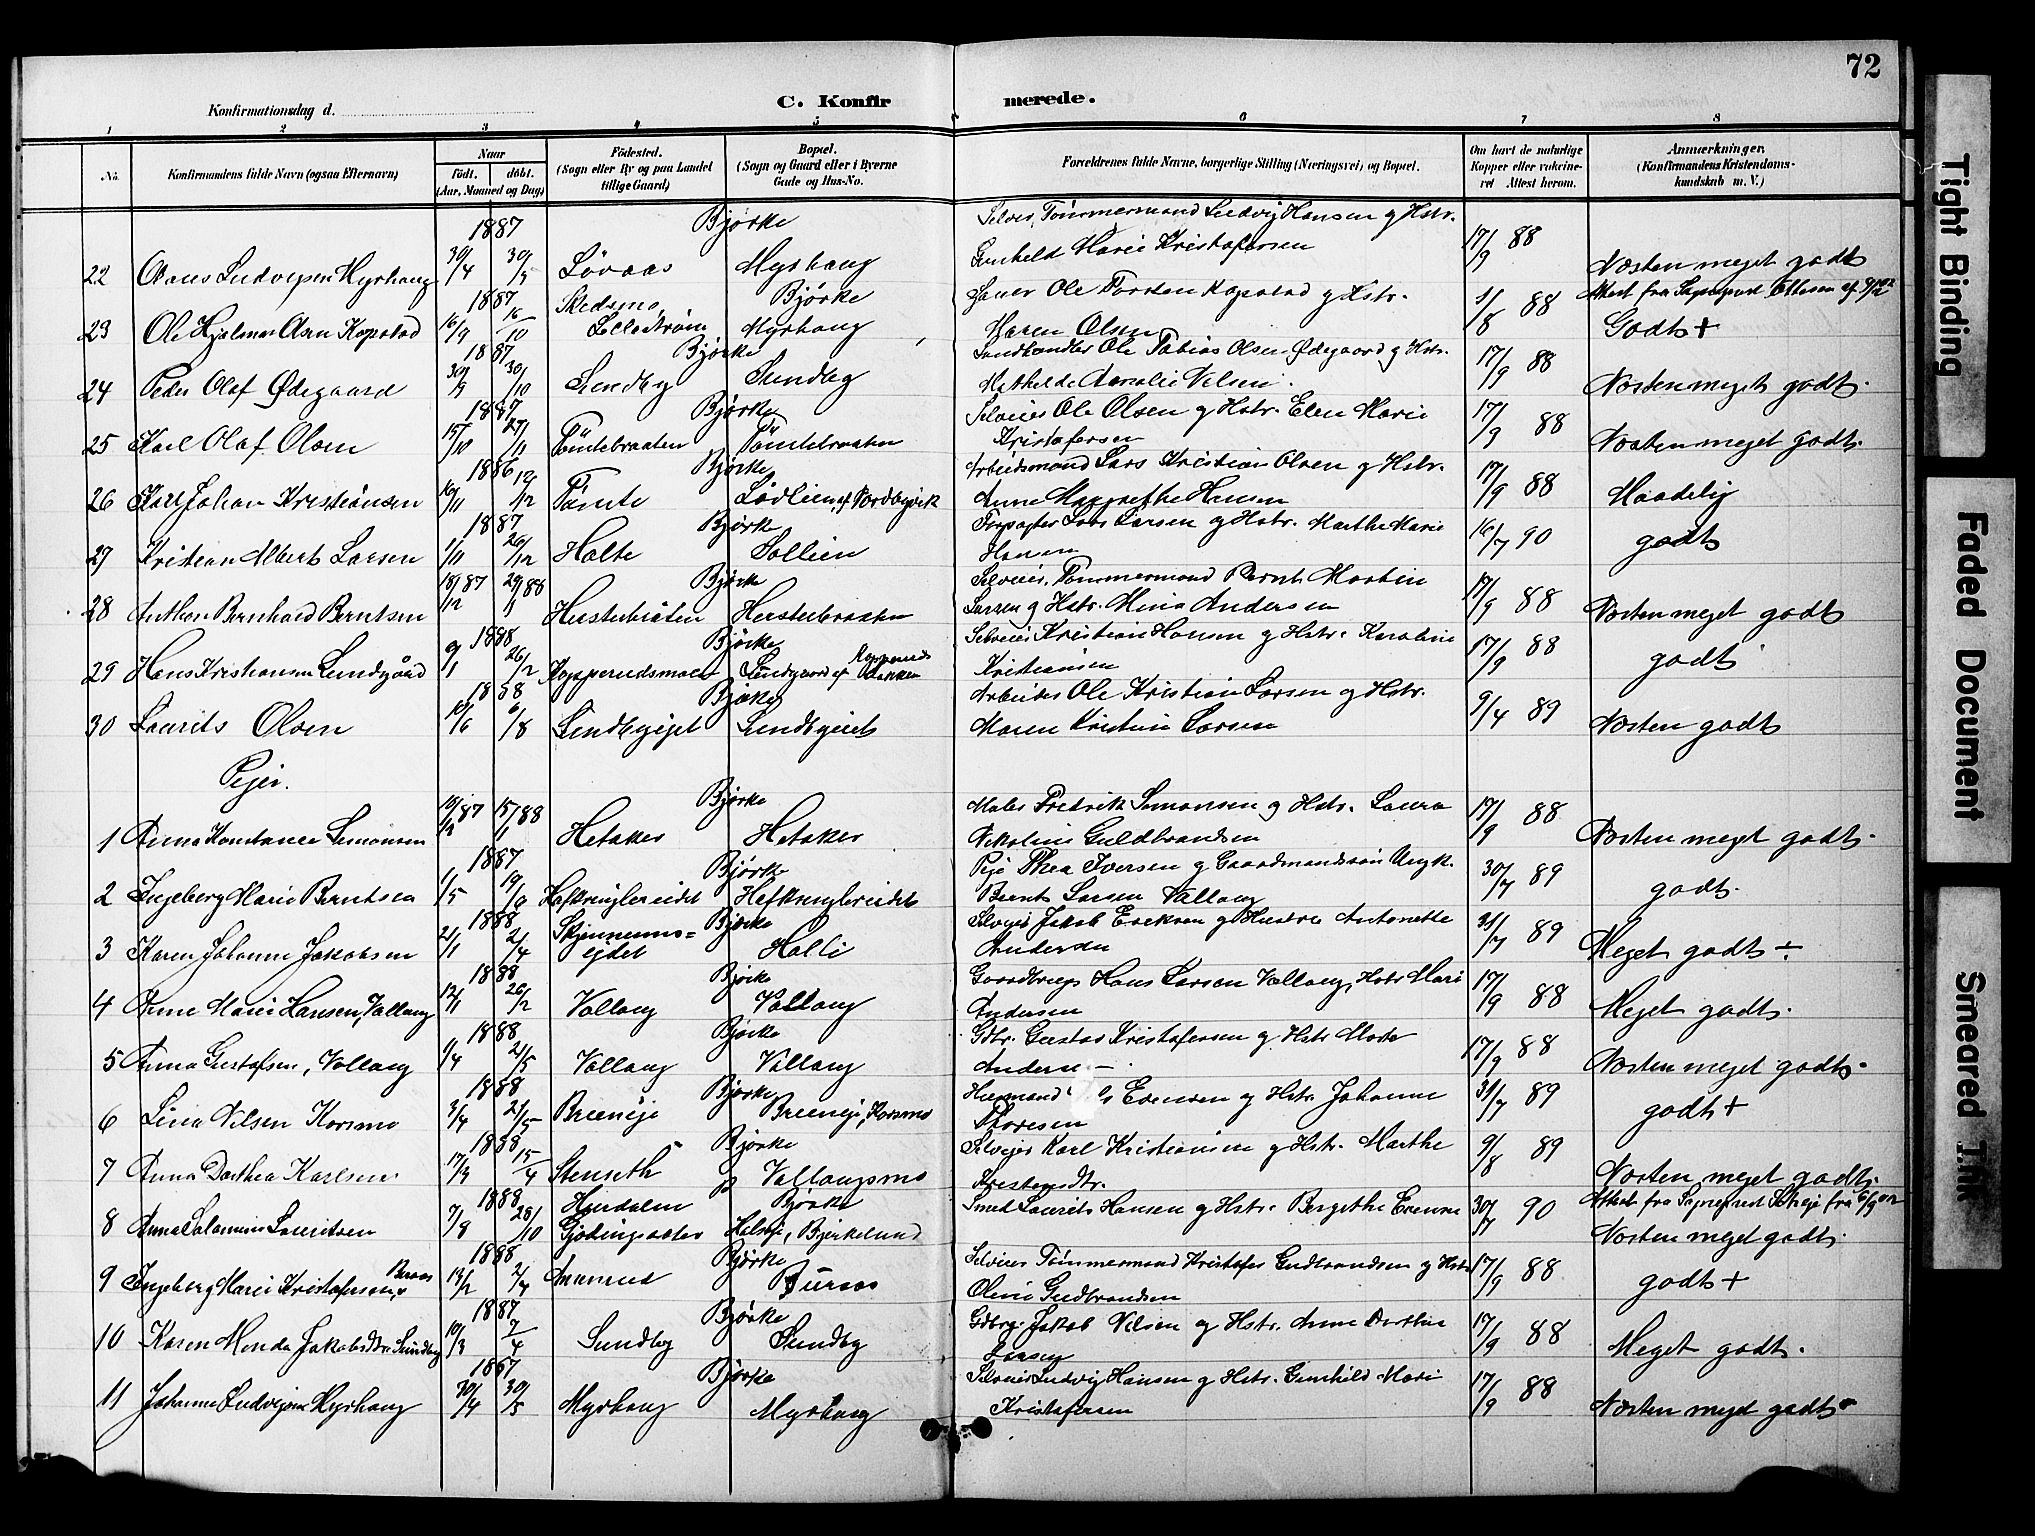 72
Konfirmationsdag d.
C. Konfirmerede.
1 2 3 4 5 6 7 8
No. Konfirmandens fulde Navn (ogsaa Efternavn) Naar født. døbt. (Aar, Maaned og Dag) Fødested. (Sogn eller By og paa Landet tillige Gaard) Bopæl. (Sogn og Gaard eller i Byerne Gade og Hus-No. Forældrenes fulde Navne, borgerlige Stilling (Næringsvei) og Bopæl. Om havt de naturlige Kopper eller vakcineret Attest herom. Anmærkninger. (Konfirmandens Kristendomskundskab m. V.)
1887 Bjørke Selveier, Tømmermand Ludvig Hansen g Hstr.
22 Olaus Ludvigsen Myrhaug 30/4 30/5 Løvaas Myrhaug Gunhild Marie Kristofersen 17/9 88 Næsten meget godt
1887 Skedsmo, Bjørke Ole Torsten Kopstad g Hstr. Attest fra Sognepræst
23 Ole Hjalmar Olsen Kopstad 16/9 16/10 Lillestrøm Myrhaug Maren Olsen 1/8 88 Godt +
1887 Bjørke Landhandler Ole Tobias Olsen Ødegaard g Hstr.
24 Peder Olaf Ødegaard 30/9 30/10 Sundby Sundby Mathilde Amalie Nilsen. 17/9 88 Næsten meget godt.
1887 Bjørke Selveier Ole Olsen g Hstr. Elen Marie
25 Karl Olaf Olsen 15/10 27/11 Tömtebraaten Tömtebraaten Kristofersen 17/9 88 Næsten meget godt.
1886 Bjørke Arbeidsmand Lars Kristian Olsen g Hstr.
26 Karl Johan Kristiansen 10/11 12/12 Tömte Lødlien, af Nordbyørk Anne Margrethe Hansen 17/9 88 Maadelig
1887 Bjørke Forpagter Lars Larsen g Hstr. Marthe Marie
27 Kristian Albert Larsen 1/11 26/12 Holte Sollien Hansen 16/7 90 godt
18/12 87 29/1 88 Bjørke Selveier, Tømmermand Bernt Martin
28 Anthon Bernhard Berntsen Hestebraaten Hestebraaten Larsen g Hstr. Mina Andersen 17/9 88 Næsten meget godt
1888 Bjørke Selveier Kristian Hansen g Hstr. Karoline
29 Hans Kristiansen Lundgaard 9/1 26/2 Kopperudsmoen Lundgaard af Kopperudsbakken Kristiansen 17/9 88 godt
1888 Bjørke Arbeider Ole Kristian Larsen g Hstr.
30 Laurits Olsen 10/6 6/8 Sundbyejet Sundbyeiet Maren Kristine Larsen 9/4 89 Næsten godt
Pejer.
10/12 87 15/1 88 Bjørke Maler Fredrik Simonsen g Hstr. Laura
1 Anna Konstance Simonsen Hetaker Hetaker Nikoline Guldbrandsen 17/9 88 Næsten meget godt.
1887 Bjørke Pige Thea Iversen g Gaardmandssøn Ungk.
2 Ingeborg Marie Berntsen 1/5 19/9 Hafkrnglereidet Hafkrnglereidet Bernt Larsen Vallang 30/7 89 godt.
1888 Skjønnums= Bjørke Selvejer Jakob Eriksen g Hustru Antonette
3 Karen Johanne Jakobsen 2/1 2/4 ejdet Halli Andersen 31/7 89 Meget godt ÷
1888 Bjørke Gaardbrug. Hans Larsen Vallang, Hstr Mari
4 Anne Marie Hansen, Vallang 12/1 26/2 Vallang Vallang Andersen 17/9 88 Meget godt.
1888 Bjørke Gdbr. Gustav Kristofersen g Hstr Marte
5 Anna Gustafsen, Vallang 1/4 21/5 Vallang Vallang Andersen 17/9 88 Næsten meget godt.
1888 Bjørke Husmand Evensen g Hstr. Johanne
6 Lina Nilsen Korsmo 3/4 21/5 Breeneje Breeneje, Korsmo Thoresen 31/7 89 godt +
1888 Bjørke Selvejer Karl Kristiansen g Hstr. Marthe
7 Anna Dorthea Karlsen 17/3 15/4 Stenseth p Vallangsmo Kristensdtr. 9/8 89 Næsten meget godt.
1888 Hurdalen Bjørke Smed Laurits Hansen g Hstr. Bergithe Evensen Attest fra Sognepræst
8 Anna Salamine Lauritsen 7/8 28/10 Gjødingsæter Halseje, Bjerkelund 30/7 90 Næsten meget godt.
1888 Bjørke Selveier Tømmermand Kristofer Gudbrandsen g Hstr
9 Ingeborg Marie Kristofersen, Buraas 13/2 2/4 Aamrud Buraas Oline Gudbrandsen 17/9 88 godt +
1887 Bjørke Gdbrg. Jakob Nilsen g Hstr. Anne Dorthea
10 Karen Monda Jakobsdtr Sundby 10/3 7/4 Sundby Sundby Larsen 17/9 88 Meget godt.
1887 Bjørke Selveier Ludvig Hansen g Hstr. Gunhild Mari
11 Johanne Ludvigsen Myrhaug 30/4 30/5 Myrhaug Myrhaug Kristofersen 17/9 88 Næsten meget godt
Tight Binding
Faded Document
Smeared Ink